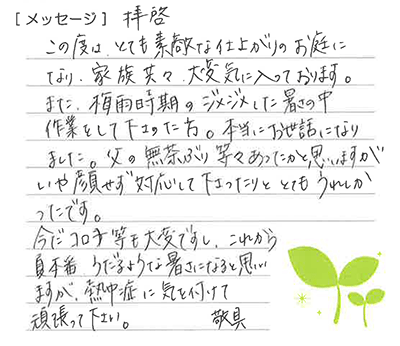 [メッセージ] 拝啓
この度は、とても素敵な仕上がりのお庭に
なり、家族共々、大変気に入っております。
また、梅雨時期のジメジメした暑さの中
作業をして下さった方。本当にお世話になり
ました。父の無茶ぶり等々あったかと思いますが
いや顔せず対応して下さったりと とてもうれしか
ったです。
今だコロナ等も大変ですし、これから
夏本番、うだるような暑さになると思い
ますが、熱中症に気を付けて
頑張って下さい。 敬具